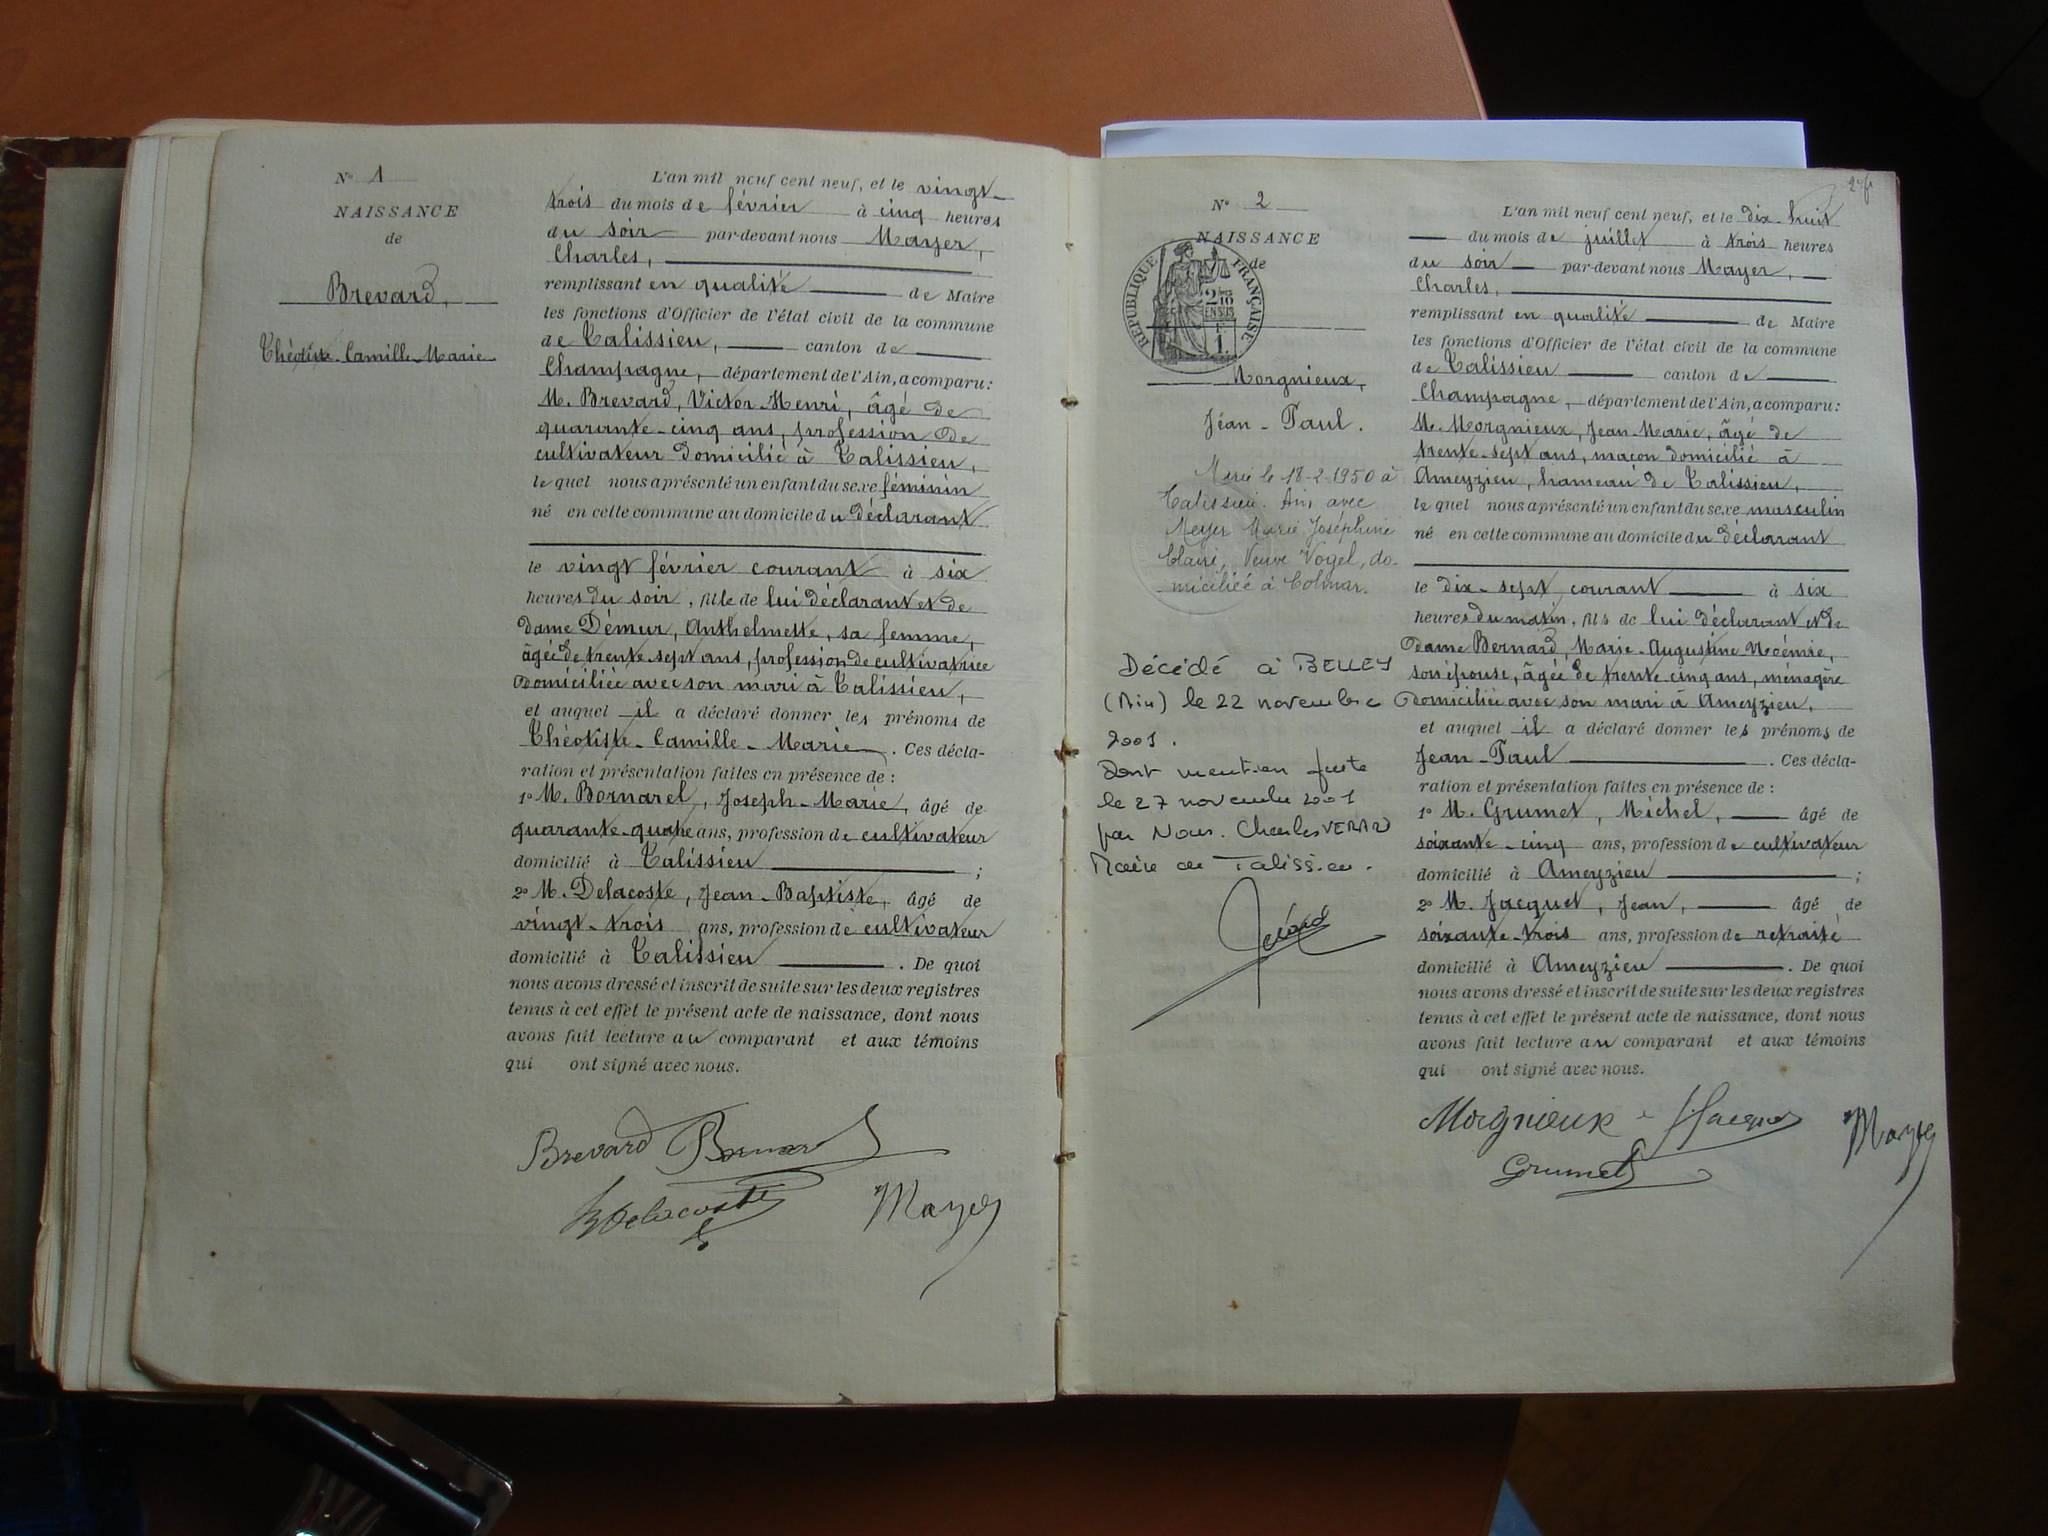 N° 1
NAISSANCE
de
Brevard,
Théotiste-Camille-Marie
L'an mil neuf cent neuf, et le vingt-
trois du mois de février à cinq heures
du soir par-devant nous Mayer,
Charles,
remplissant en qualité de Maire
les fonctions d'Officier de l'état civil de la commune
de Talissieu, canton de
Champagne, département de l'Ain, a comparu :
M. Brevard, Victor-Henri, âgé de
quarante-cinq ans, profession de
cultivateur domicilié à Talissieu,
le quel nous a présenté un enfant du sexe féminin
né en cette commune au domicile du déclarant
le vingt février courant à six
heures du soir, fille de lui déclarant et de
dame Démur, Anthelmette, sa femme,
âgée de trente-sept ans, profession de cultivatrice
domiciliée avec son mari à Talissieu,
et auquel il a déclaré donner les prénoms de
Théotiste-Camille-Marie. Ces décla-
ration et présentation faites en présence de :
1° M. Bornarel, Joseph-Marie, âgé de
quarante-quatre ans, profession de cultivateur
domicilié à Talissieu ;
2° M. Delacoste, Jean-Baptiste, âgé de
vingt-trois ans, profession de cultivateur
domicilié à Talissieu . De quoi
nous avons dressé et inscrit de suite sur les deux registres
tenus à cet effet le présent acte de naissance, dont nous
avons fait lecture au comparant et aux témoins
qui ont signé avec nous.
Brevard Bornarel
Delacoste Mayer
N° 2
NAISSANCE
de
RÉPUBLIQUE FRANÇAISE
2/10
EN SUS
1 F.
Morgnieux,
Jean-Paul.
Marié le 18-2-1950 à
Talissieu. Ain avec
Meyer Marie Joséphine
Claire, Veuve Vogel, do-
miciliée à Colmar.
Décédé à BELLEY
(Ain) le 22 novembre
2001.
Dont mention faite
le 27 novembre 2001
par Nous. Charles VERARD
Maire de Talissieu.
L'an mil neuf cent neuf, et le dix-huit
du mois de juillet à trois heures
du soir par-devant nous Mayer,
Charles,
remplissant en qualité de Maire
les fonctions d'Officier de l'état civil de la commune
de Talissieu canton de
Champagne, département de l'Ain, a comparu :
M. Morgnieux, Jean-Marie, âgé de
trente-sept ans, maçon domicilié à
Ameyzieu, hameau de Talissieu,
le quel nous a présenté un enfant du sexe masculin
né en cette commune au domicile du déclarant
le dix-sept courant à six
heures du matin, fils de lui déclarant et de
dame Bernard, Marie-Augustine Noémie,
son épouse, âgée de trente-cinq ans, ménagère
domiciliée avec son mari à Ameyzieu,
et auquel il a déclaré donner les prénoms de
Jean-Paul . Ces décla-
ration et présentation faites en présence de :
1° M. Grumet, Michel, âgé de
soixante-cinq ans, profession de cultivateur
domicilié à Ameyzieu ;
2° M. Jacquet, Jean, âgé de
soixante-trois ans, profession de retraité
domicilié à Ameyzieu . De quoi
nous avons dressé et inscrit de suite sur les deux registres
tenus à cet effet le présent acte de naissance, dont nous
avons fait lecture au comparant et aux témoins
qui ont signé avec nous.
Morgnieux Jacquet Mayer
Grumet